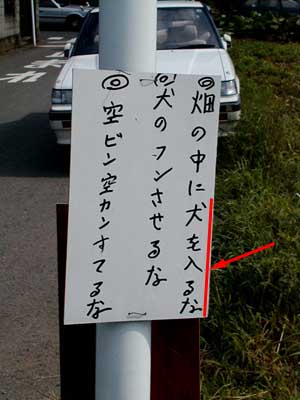 ◎畑の中に犬を入るな
◎犬のフンさせるな
◎空ビン空カンすてるな